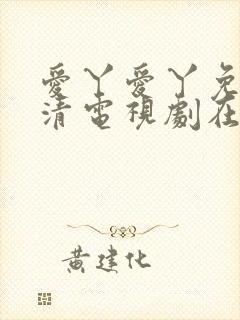 愛丫愛丫免
清電視劇在
黃建化